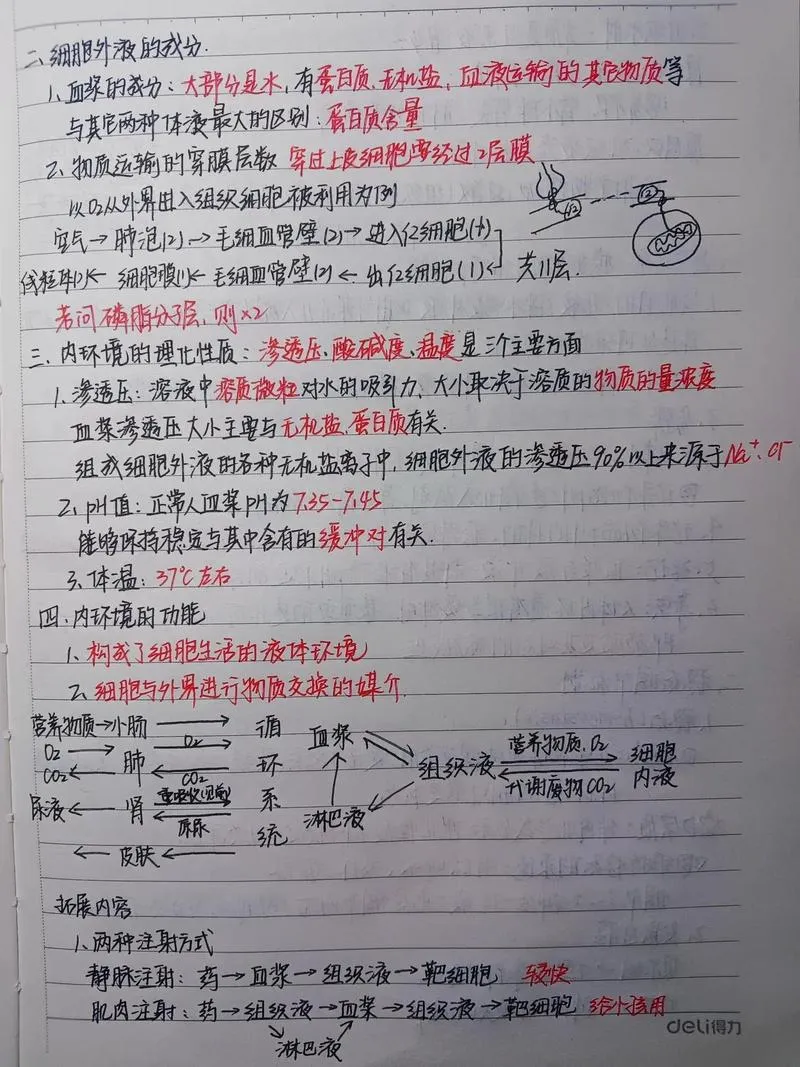 二、细胞外液的成分.
1、血浆的成分：大部分是水，有蛋白质、无机盐，血液运输的其它物质等
与其它两种体液最大的区别：蛋白质含量
2、物质运输的穿膜层数 穿过上皮细胞要经过2层膜
以O₂从外界进入组织细胞被利用为例
空气→肺泡(2)→毛细血管壁(2)→进入红细胞(1)
线粒体(2)←细胞膜(1)←毛细血管壁(2)←出红细胞(1) 共11层.
若问磷脂分子层，则×2
三、内环境的理化性质：渗透压、酸碱度、温度是三个主要方面
1、渗透压：溶液中溶质微粒对水的吸引力、大小取决于溶质的物质的量浓度
血浆渗透压大小主要与无机盐、蛋白质有关.
组成细胞外液的各种无机盐离子中，细胞外液的渗透压90%以上来源于Na⁺、Cl⁻
2、pH值：正常人血浆pH为7.35-7.45
能够保持稳定与其中含有的缓冲对有关.
3、体温：37℃左右
四、内环境的功能
1、构成了细胞生活的液体环境
2、细胞与外界进行物质交换的媒介.
营养物质→小肠 → 循 血浆 营养物质、O₂
O₂ → 肺 O₂ → 环 组织液 细胞
CO₂ ← CO₂ ← 代谢废物CO₂ 内液
尿液 ← 肾 重吸收 系 淋巴液
原尿 统
← 皮肤 ←
拓展内容
1、两种注射方式
静脉注射：药→血浆→组织液→靶细胞 较快
肌肉注射：药→组织液→血浆→组织液→靶细胞 给小孩用
淋巴液
deli得力